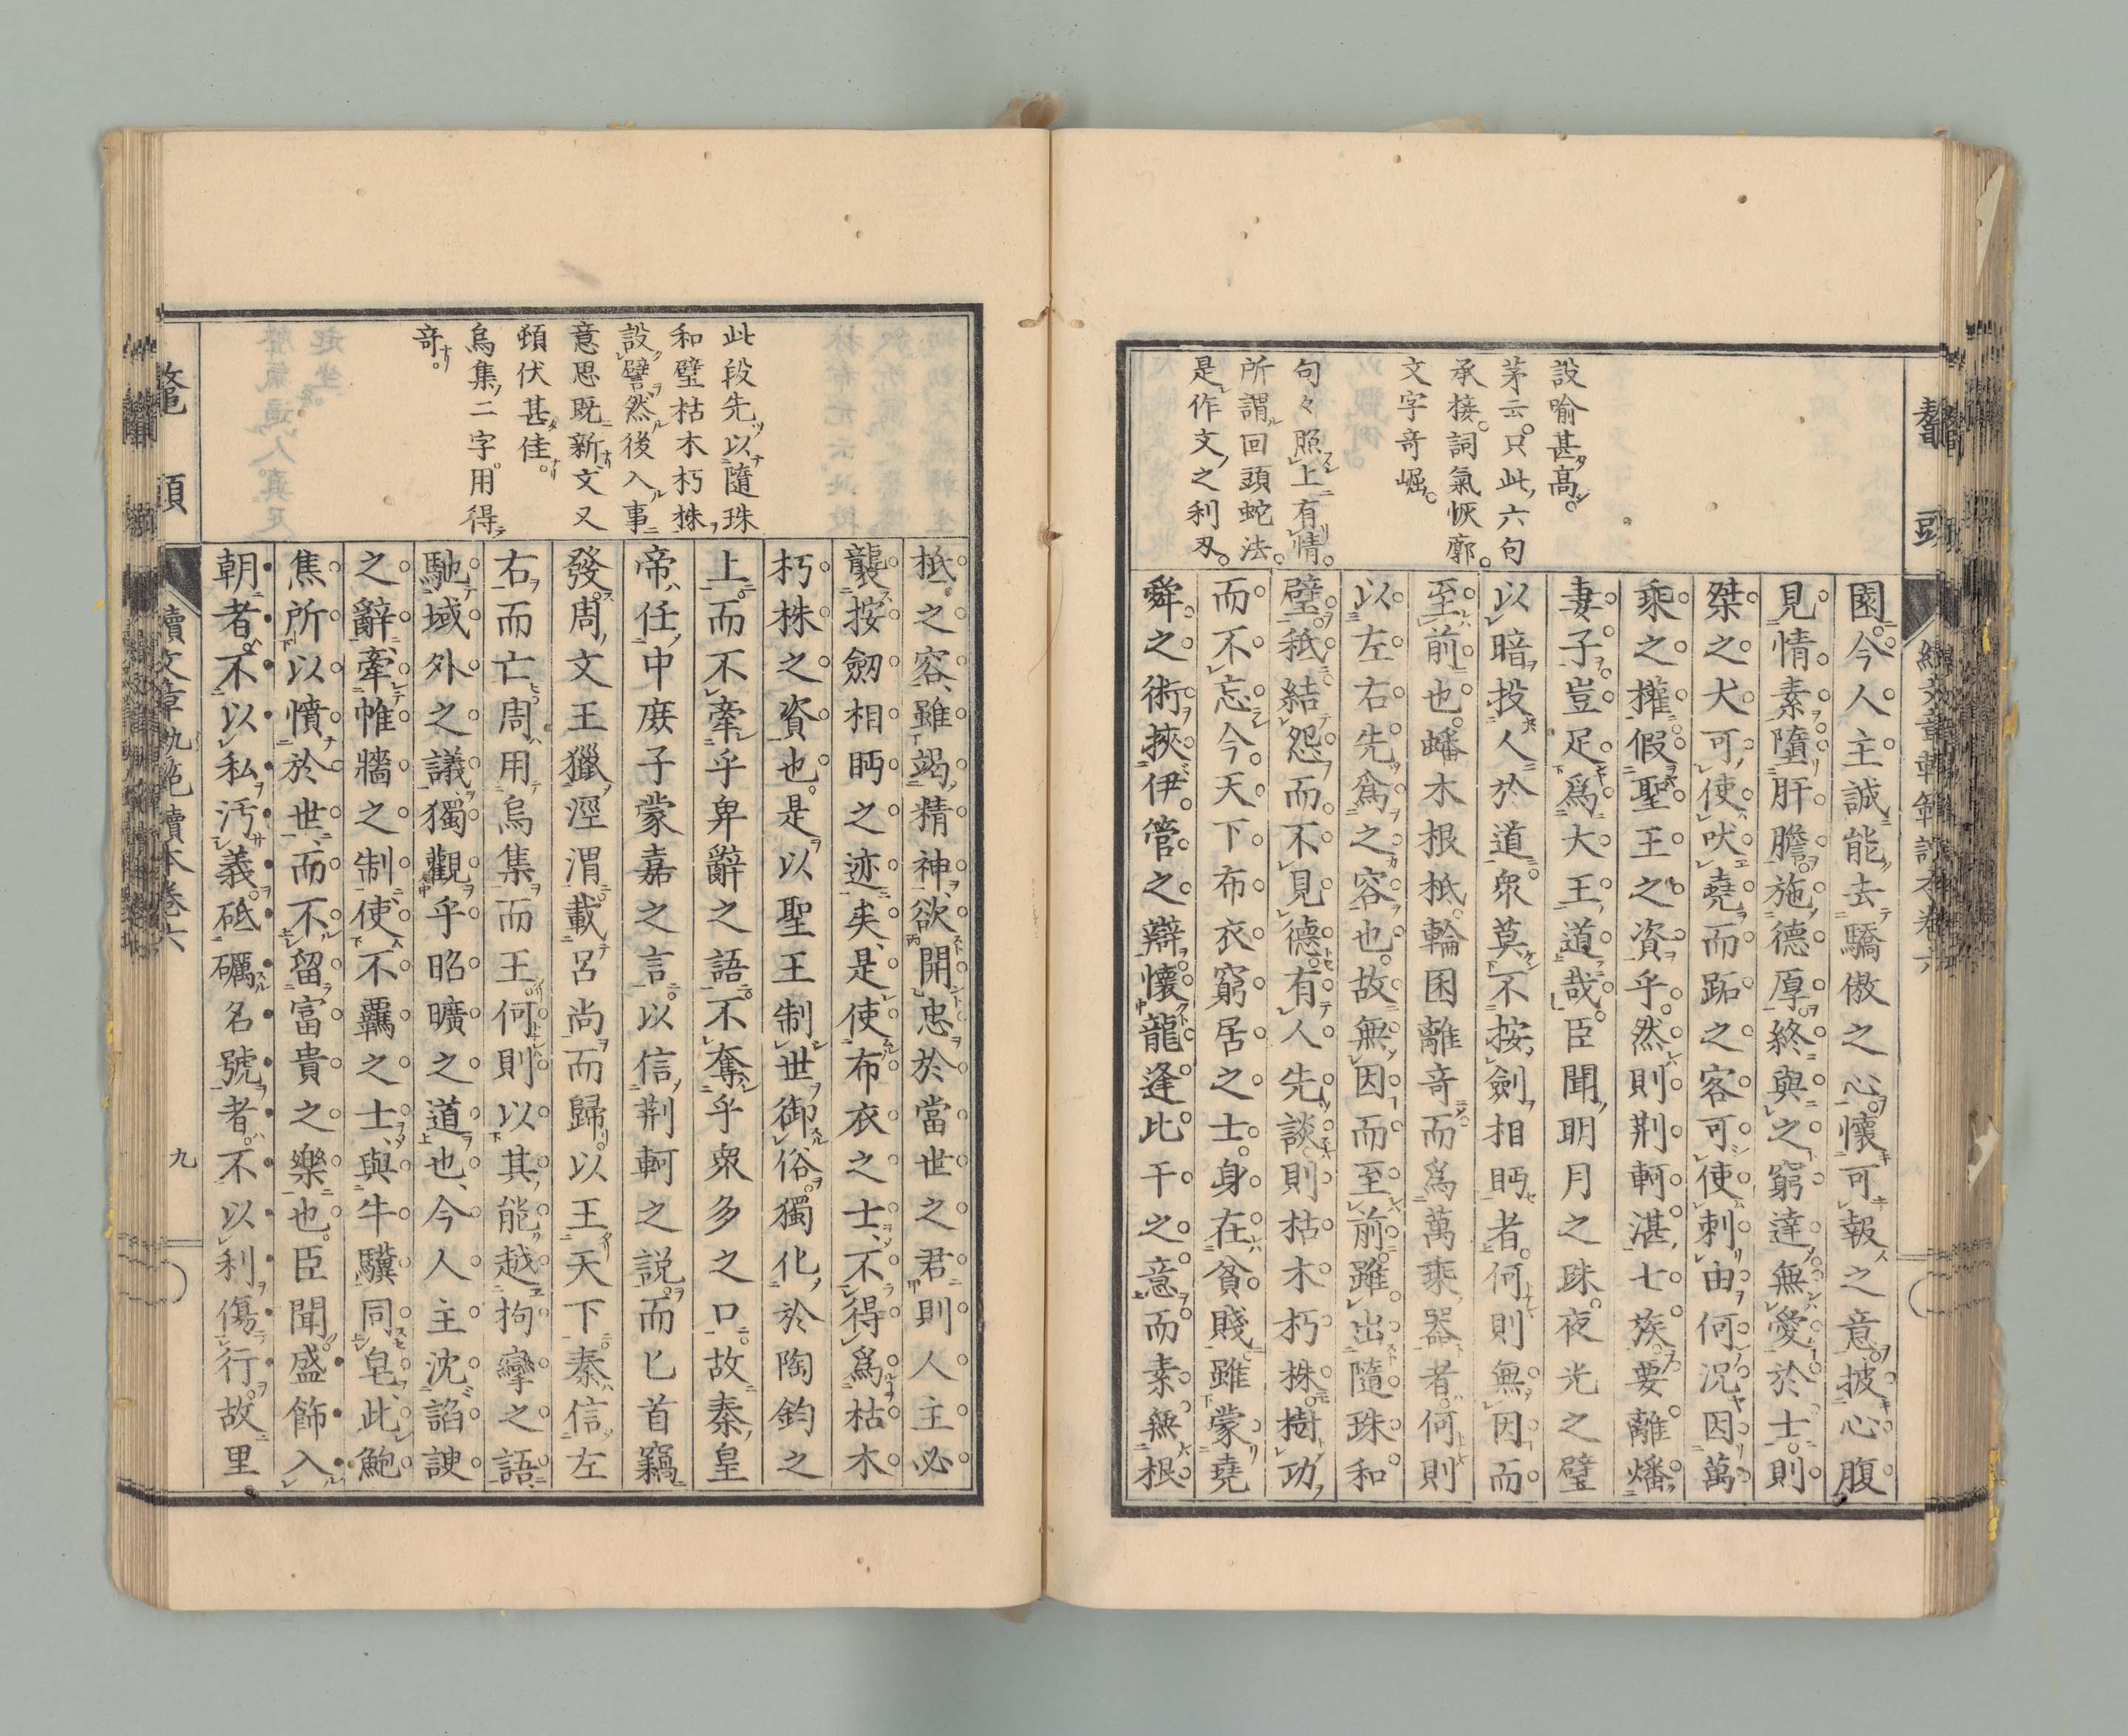 鼇頭
設喻甚高。
茅云。只此六句
承接。詞氣恢廓。
文字奇崛。
句々照上有情。
所謂回頭蛇法。
是作文之利刃。
園。今人主誠能去驕傲之心。懷可報之意。披心腹
見情素。墮肝膽。施德厚。終與之窮達。無愛於士。則
桀之犬可使吠堯。而跖之客可使刺由。何況因萬
乘之權。假聖王之資乎。然則荆軻湛七族。要離燔
妻子。豈足爲大王道哉。臣聞明月之珠。夜光之璧
以暗投人於道。衆莫不按劍相眄者。何則無因而
至前也。蟠木根柢。輪囷離奇。而爲萬乘器者。何則
以左右先爲之容也。故無因而至前。雖出隨珠和
璧。秪結怨而不見德。有人先談。則枯木朽株。樹功
而不忘。今天下布衣窮居之士。身在貧賤。雖蒙堯
舜之術。挾伊管之辯。懷龍逢比干之意。而素無根
此段先以隨珠
和璧枯木朽株
設譬。然後入事
意思既新。文又
頓伏甚佳。
烏集二字。用得
奇。
柢之容、雖竭精神、欲開忠於當世之君、則人主必
襲按劒相眄之迹矣、是使布衣之士、不得爲枯木
朽株之資也。是以聖王制世御俗。獨化於陶鈞之
上。而不牽乎卑辭之語。不奪乎衆多之口。故秦皇
帝任中庶子蒙嘉之言。以信荆軻之説。而匕首竊
發。周文王獵涇渭。載呂尚而歸。以王天下。秦信左
右而亡。周用烏集而王。何則以其能越拘攣之語。
馳域外之議、獨觀乎昭曠之道也、今人主沈諂諛
之辭、牽帷牆之制、使不羈之士、與牛驥同皂、此鮑
焦所以憤於世、而不留富貴之樂也。臣聞盛飾入
朝者。不以私汚義。砥礪名號者。不以利傷行。故里
鼇頭
續文章軌範讀本卷六
九